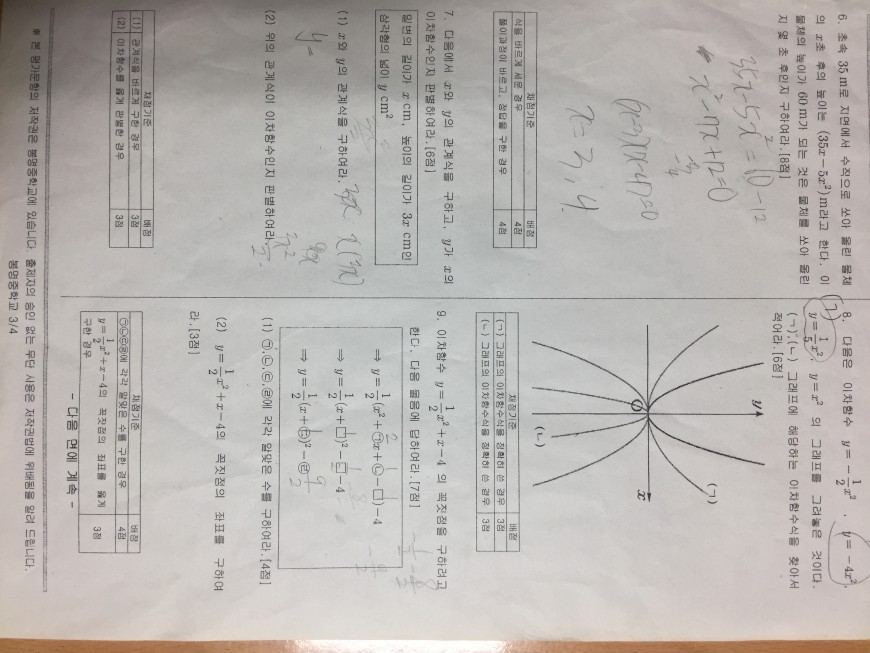 6. 초속 35 m로 지면에서 수직으로 쏘아 올린 물체
의 x초 후의 높이는 (35x-5x²) m라고 한다. 이
물체의 높이가 60 m가 되는 것은 물체를 쏘아 올린
지 몇 초 후인지 구하여라. [8점]
x²-7x+12=0
(x-3)(x-4)=0
x=3, 4.
채점기준 배점
식을 바르게 세운 경우 4점
풀이과정이 바르고, 정답을 구한 경우 4점
7. 다음에서 x와 y의 관계식을 구하고, y가 x의
이차함수인지 판별하여라. [6점]
밑변의 길이가 x cm, 높이의 길이가 3x cm인
삼각형의 넓이 y cm²
(1) x와 y의 관계식을 구하여라.
y=
x(3x)
(2) 위의 관계식이 이차함수인지 판별하여라.
채점기준 배점
(1) 관계식을 바르게 구한 경우 3점
(2) 이차함수를 옳게 판별한 경우 3점
8. 다음은 이차함수 y=-1/2x², y=-4x²,
y=1/5x², y=x² 의 그래프를 그려놓은 것이다.
(ㄱ), (ㄴ) 그래프에 해당하는 이차함수식을 찾아서
적어라. [6점]
y
(ㄱ)
O
x
(ㄴ)
채점기준 배점
(ㄱ) 그래프의 이차함수식을 정확히 쓴 경우 3점
(ㄴ) 그래프의 이차함수식을 정확히 쓴 경우 3점
9. 이차함수 y=1/2x²+x-4 의 꼭짓점을 구하려고
한다. 다음 물음에 답하여라. [7점]
⇒ y=1/2(x²+㉠x+㉡-□)-4
⇒ y=1/2(x+□)²-□-4
⇒ y=1/2(x+㉢)²-㉣
(1) ㉠,㉡,㉢,㉣에 각각 알맞은 수를 구하여라. [4점]
(2) y=1/2x²+x-4의 꼭짓점의 좌표를 구하여
라. [3점]
채점기준 배점
㉠㉡㉢㉣에 각각 알맞은 수를 구한 경우 4점
y=1/2x²+x-4의 꼭짓점의 좌표를 옳게
구한 경우 3점
- 다음 면에 계속 -
※ 본 평가문항의 저작권은 봉명중학교에 있습니다. 출제자의 승인 없는 무단 사용은 저작권법에 위배됨을 알려 드립니다.
봉명중학교 3/4